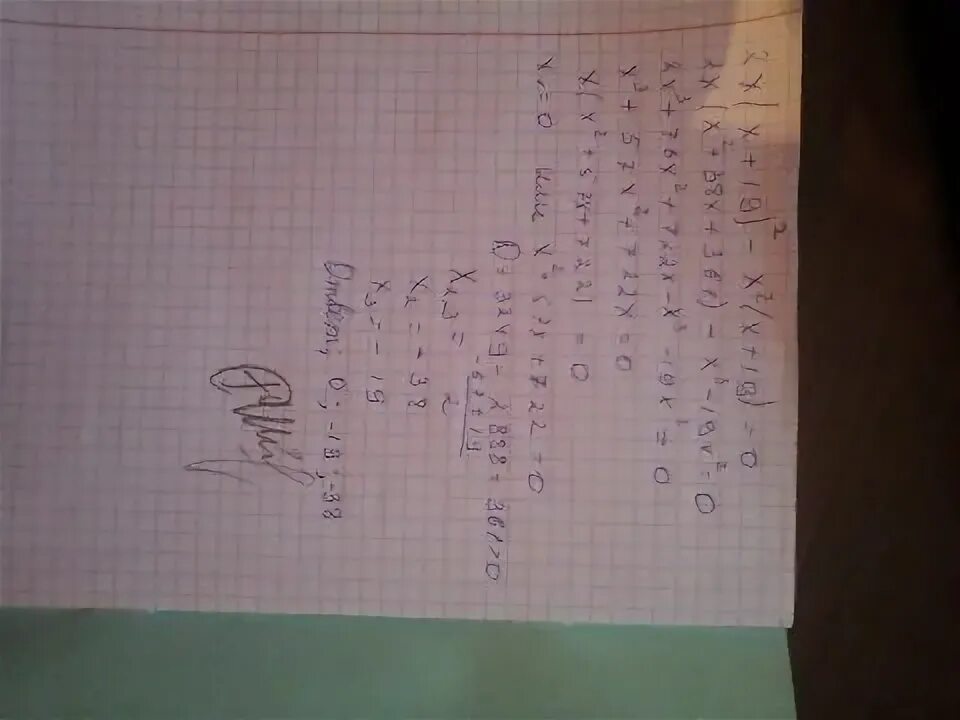 2x(x+19)² - x²(x+19) = 0
2x(x²+38x+361) - x³ - 19x² = 0
2x³ + 76x² + 722x - x³ - 19x² = 0
x³ + 57x² + 722x = 0
x(x² + 57x + 722) = 0
x = 0 или x² + 57x + 722 = 0
D = 3249 - 2888 = 361 > 0
x₂,₃ = (-57 ± 19)/2
x₂ = -38
x₃ = -19
Ответ: 0; -19; -38